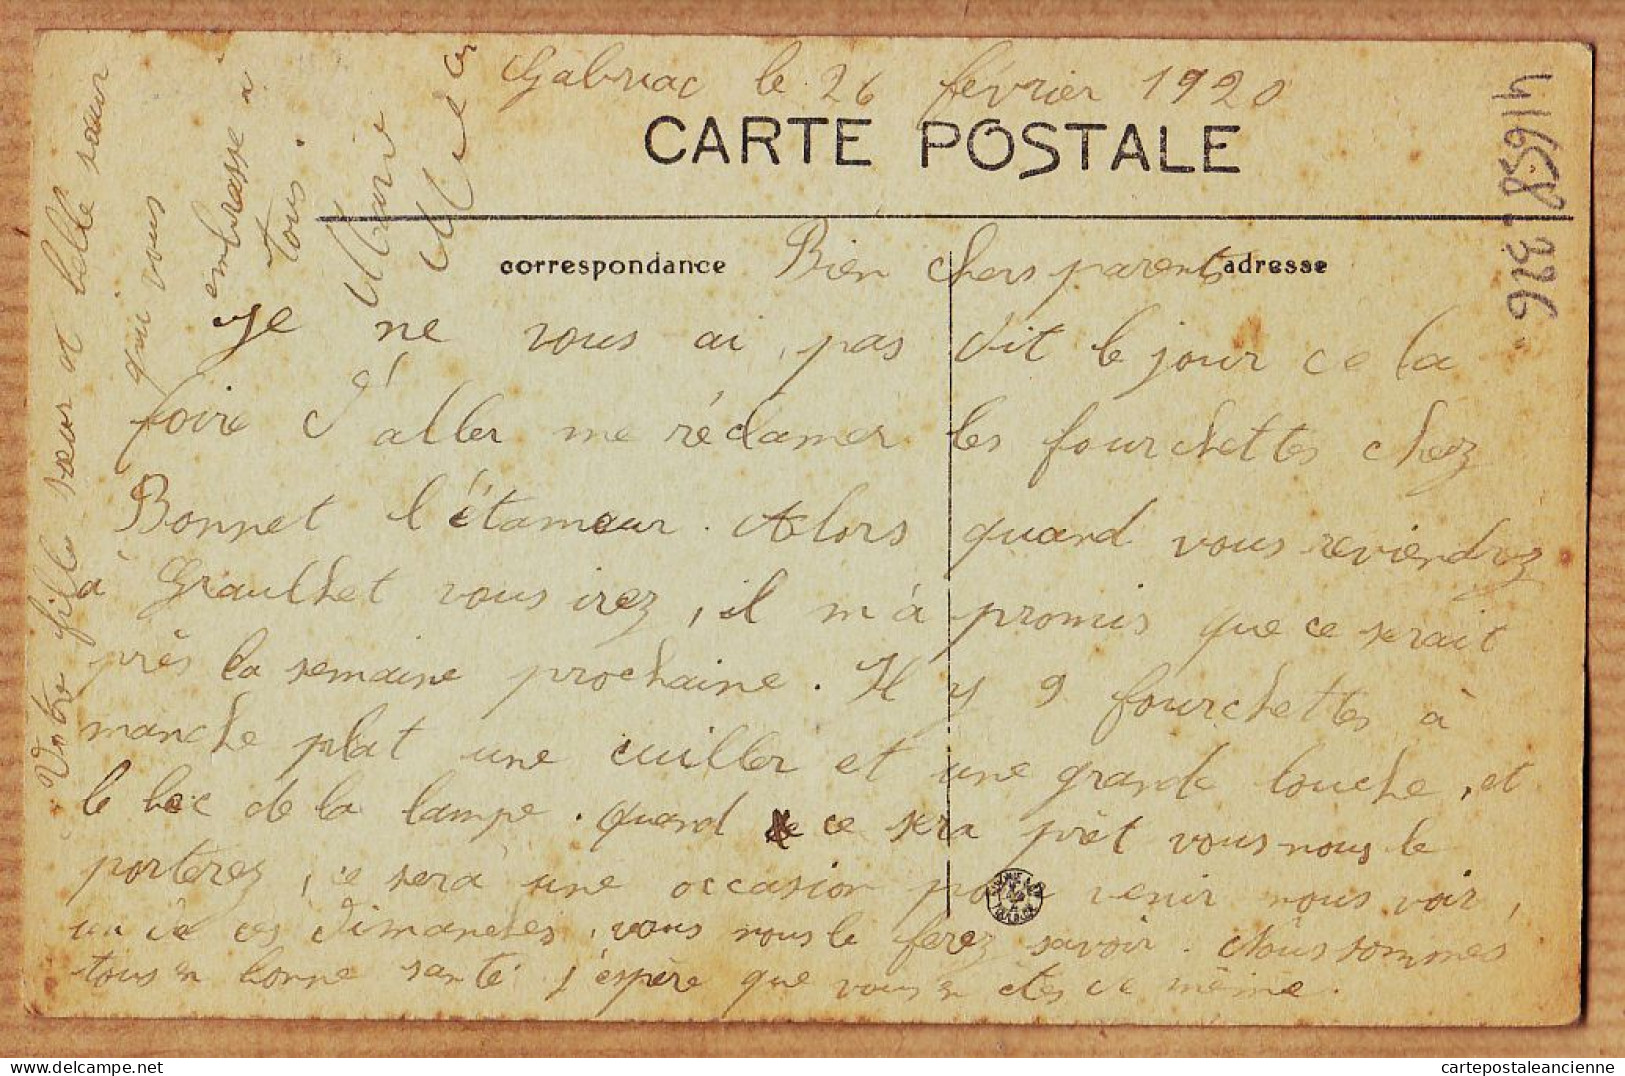 Gabriac le 26 février 1920
CARTE POSTALE
correspondance
adresse
41658 326
Bien chers parents
Je ne vous ai pas dit le jour de la
foire d'aller me réclamer les fourchettes chez
Bonnet l'étameur. Alors quand vous reviendrez
à Graulhet vous irez, il m'a promis que ce serait
près la semaine prochaine. Il y 9 fourchettes à
manche plat une cuiller et une grande louche, et
le bec de la lampe. quand ce sera prèt vous nous le
porterez, ce sera une occasion pour venir nous voir,
un de ces dimanches, vous nous le ferez savoir. Nous sommes
tous en bonne santé j'espère que vous en êtes de même.
Votre fille sœur et belle sœur
qui vous
embrasse à
tous.
Marie
cartepostaleancienne